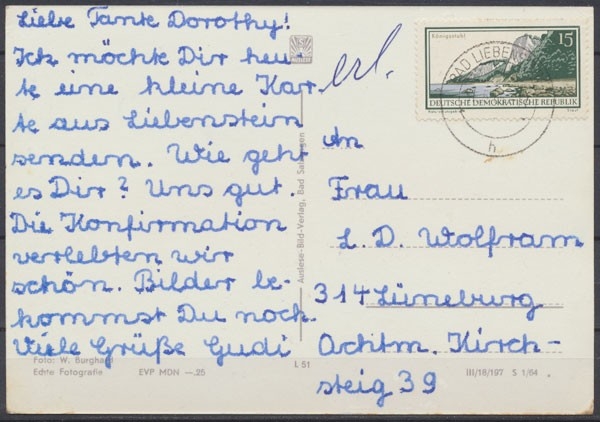 Liebe Tante Dorothy!
Ich möchte Dir heu
te eine kleine Kar
te aus Liebenstein
senden. Wie geht
es Dir? Uns gut.
Die Konfirmation
verlebten wir
schön. Bilder be-
kommst Du noch.
Viele Grüße Gudi
erl.
Königsstuhl
15
DEUTSCHE DEMOKRATISCHE REPUBLIK
BAD LIEBENS
h
An
Frau
L. D. Wolfram
314 Lüneburg
Achtm. Kirch-
steig 39
Auslese-Bild-Verlag, Bad Salzungen
Foto: W. Burghardt
Echte Fotografie EVP MDN —.25
L 51
III/18/197 S 1/64